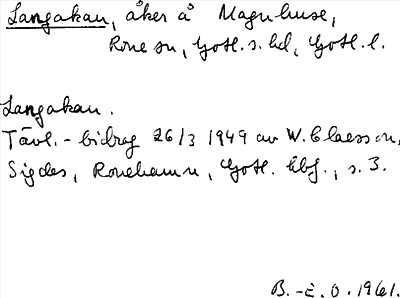 Langakau, åker å Magnuse,
Rone sn, Gotl. s. hd, Gotl. l.
Langakau.
Tävl.-bidrag 26/3 1949 av W. Claesson,
Sigdes, Ronehamn, Gotl. hbf., s. 3.
B.-E. O. 1961.